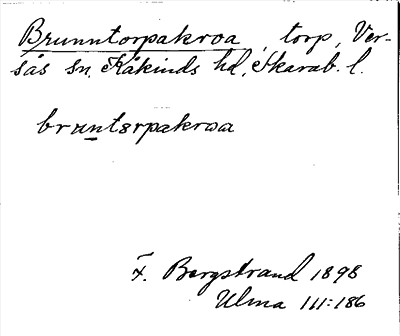 Brunntorpakroa, torp, Ver-
sås sn, Kåkinds hd, Skarab. l.
bruntorpakroa
F. Bergstrand 1898
Ulma 111:186